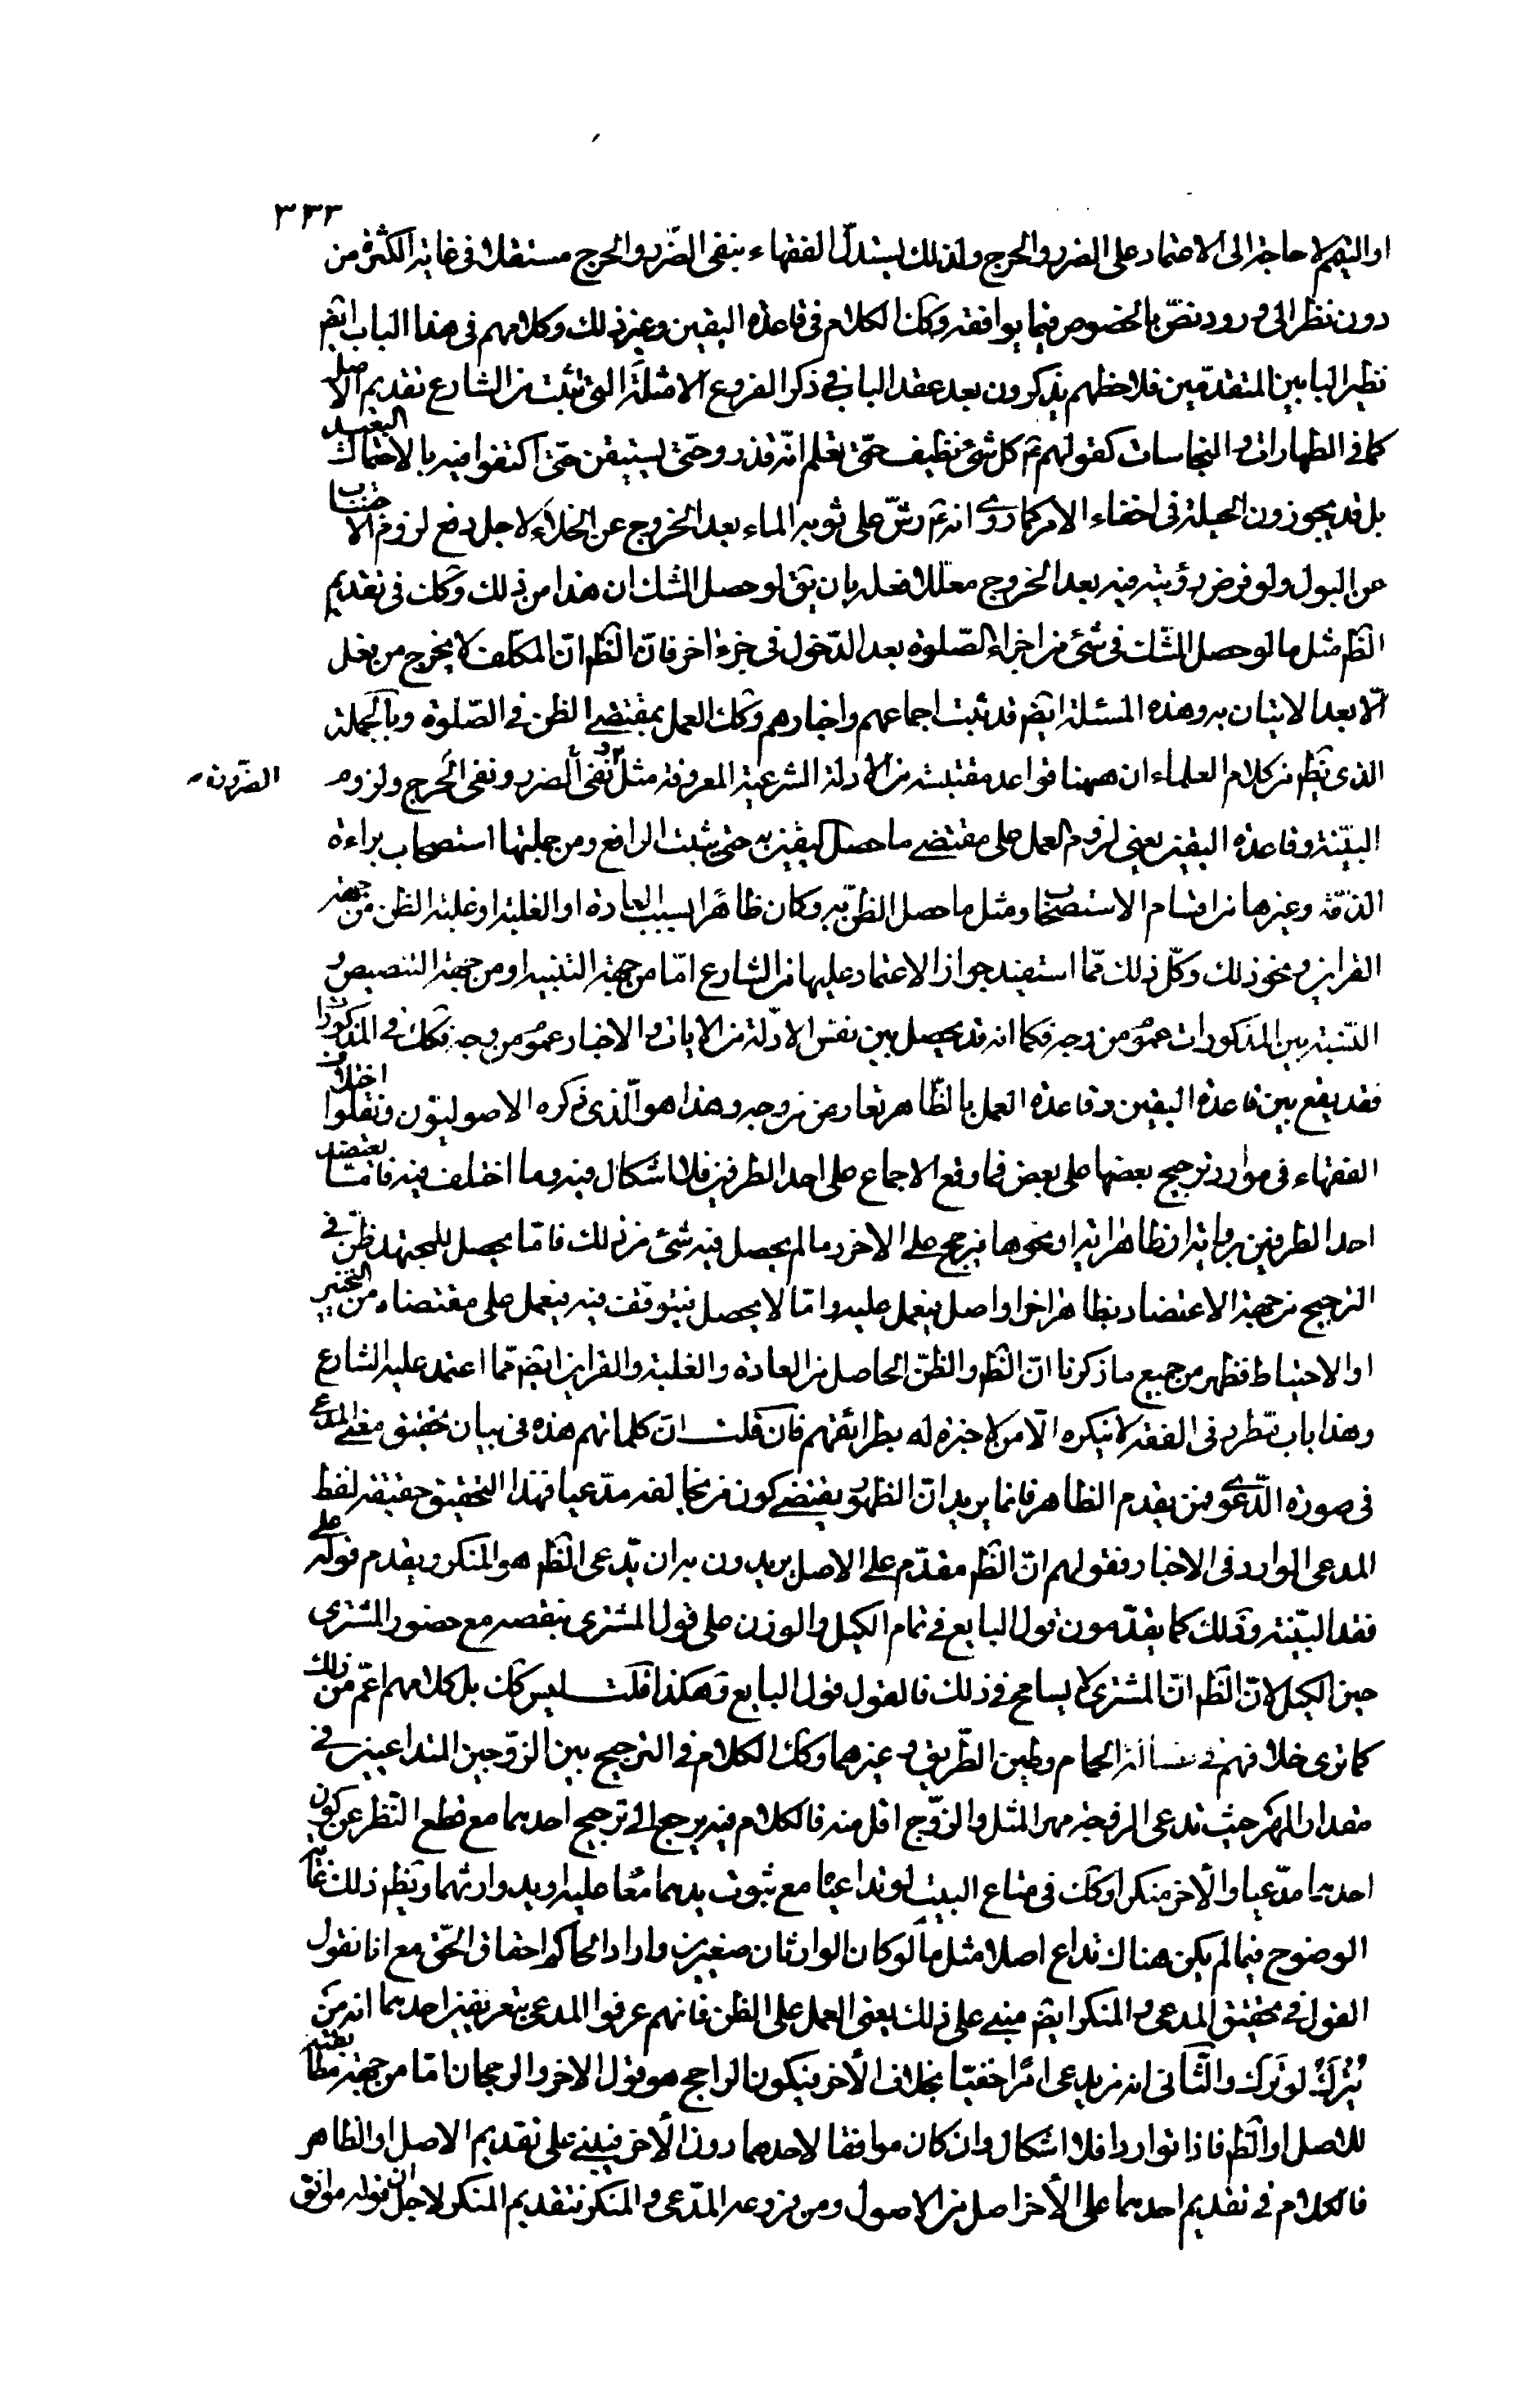 ٣٣٣
او التيمم لا حاجة الى الاعتماد على الضرر والحرج ولذلك يستدلّ الفقهاء بنفى الضّرر والحرج مستقلا فى غاية الكثرة من
دون نظر الى ورود نصّ بالخصوص فيما يوافقه وكك الكلام فى قاعدة اليقين وغير ذلك وكلامهم فى هذا الباب ايضم
نظير البابين المتقدّمين فلاحظهم يذكرون بعد عقد الباب فى ذكر الفروع الامثلة التى تثبت من الشارع تقديم الاصل
كما فى الطهارات والنجاسات كقولهم ع كل شئ نظيف حتى تعلم انّه قذر وحتّى يستيقن حتى اكتفوا فيه بالاحتمال البعيد
بل قد يجوزون الحيلة فى اخفاء الامر كما روى انه ع رشّ على ثوبه الماء بعد الخروج عن الخلاء لاجل دفع لزوم الاجتناب
عن البول ولو فرض رؤيته فيه بعد الخروج معللا فعله بان يق لو حصل الشك ان هذا من ذلك وكك فى تقديم
الظم مثل ما لو حصل الشّك فى شئ من اجزاء الصّلوة بعد الدّخول فى جزء اخر فانّ الظم انّ المكلّف لا يخرج من فعل
الّا بعد الاتيان به وهذه المسئلة ايضم قد ثبت اجماعهم واخبارهم وكك العمل بمقتضى الظن فى الصّلوة وبالجملة
الذى يظم من كلام العلماء ان ههنا قواعد مقتبسة من الادلة الشرعية المعروفة مثل نفى الضرر ونفى الحرج ولزوم
البيّنة وقاعدة اليقين يعنى لزوم العمل على مقتضى ما حصل اليقين به حتى يثبت الرافع ومن جملتها استصحاب براءة
الذمّة وغيرها من اقسام الاستصحاب ومثل ما حصل الظنّ به وكان ظاهرا بسبب العادة او الغلبة او غلبة الظن من جهة
القراين ونحو ذلك وكلّ ذلك ممّا استفيد جواز الاعتماد عليها من الشارع امّا من جهة التنبيه او من جهة التنصيص و
النّسبة بين المذكورات عموم من وجه فكما انه قد يحصل بين نفس الادّلة من الايات والاخبار عموم من وجه فكك فى المذكورات
فقد يقع بين قاعدة اليقين وقاعدة العمل بالظّاهر تعارض من وجه وهذا هو الّذى ذكره الاصوليّون ونقلوا اختلاف
الفقهاء فى موارد ترجيح بعضها على بعض فما وقع الاجماع على احد الطرفين فلا اشكال فيه وما اختلف فيه فامّا يعتضد
احد الطرفين برواية او ظاهر اية او نحوها فيرجح على الاخر وما لم يحصل فيه شئ من ذلك فامّا يحصل للمجتهد ظنّ فى
الترجيح من جهة الاعتضاد بظاهر اخر او اصل فيعمل عليه وامّا لا يحصل فيتوقف فيه فيعمل على مقتضاه من التخيير
او الاحتياط فظهر من جميع ما ذكرنا انّ الظم والظنّ الحاصل من العادة والغلبة والقراين ايضم ممّا اعتمد عليه الشارع
وهذا باب مطّرد فى الفقه لا ينكره الّا من لا خبرة له بطرائقهم فان قلت انّ كلماتهم هذه فى بيان تحقيق معنى المدعى
فى صورة الدّعوى فمن يقدم الظاهر فانما يريد انّ الظهور يقتضى كون من يخالفه مدّعيا فهذا التحقيق حقيقة لفظ
المدعى الوارد فى الاخبار فقولهم انّ الظم مقدّم على الاصل يريدون به ان يدّعى الظم هو المنكر ويقدم قوله على
فقد البيّنة وذلك كما يقدّمون قول البايع فى تمام الكيل والوزن على قول المشترى بنقصه مع حضور المشترى
حين الكيل لانّ الظم انّ المشترى لا يسامح فى ذلك فالقول قول البايع وهكذا قلت ليس كك بل كلامهم اعمّ من ذلك
كما ترى خلافهم فى غسالة الحمام وطين الطّريق وغيرهما وكك الكلام فى الترجيح بين الزوّجين المتداعيين فى
مقدار المهر حيث تدعى الزوجة مهر المثل والزوّج اقل منه فالكلام فيه يرجع الى ترجيح احدهما مع قطع النّظر عن كون
احدهما مدّعيا والأخر منكرا وكك فى متاع البيت لو تداعياه مع ثبوت يدهما معًا عليه او يد وارثهما ويظم ذلك غاية
الوضوح فيما لم يكن هناك تداع اصلا مثل ما لو كان الوارثان صغيرين واراد الحاكم احقاق الحّق مع انا نقول
القول فى تحقيق المدعى والمنكر ايضم مبنى على ذلك يعنى العمل على الظن فانهم عرفوا المدعى بتعريفين احدهما انه من
يُترَك لو تَرك والثّانى انه من يدعى امرًا خفيّا بخلاف الأخر فيكون الراجح هو قول الاخر والرجحان امّا من جهة مطابقته
للاصل او الظم فاذا تواردا فلا اشكال وان كان موافقا لاحدهما دون الأخر فيبنى على تقديم الاصل او الظاهر
فالكلام فى تقديم احدهما على الأخر اصل من الاصول ومن فروعه المدّعى والمنكر فتقديم المنكر لاجل ان قوله موافق